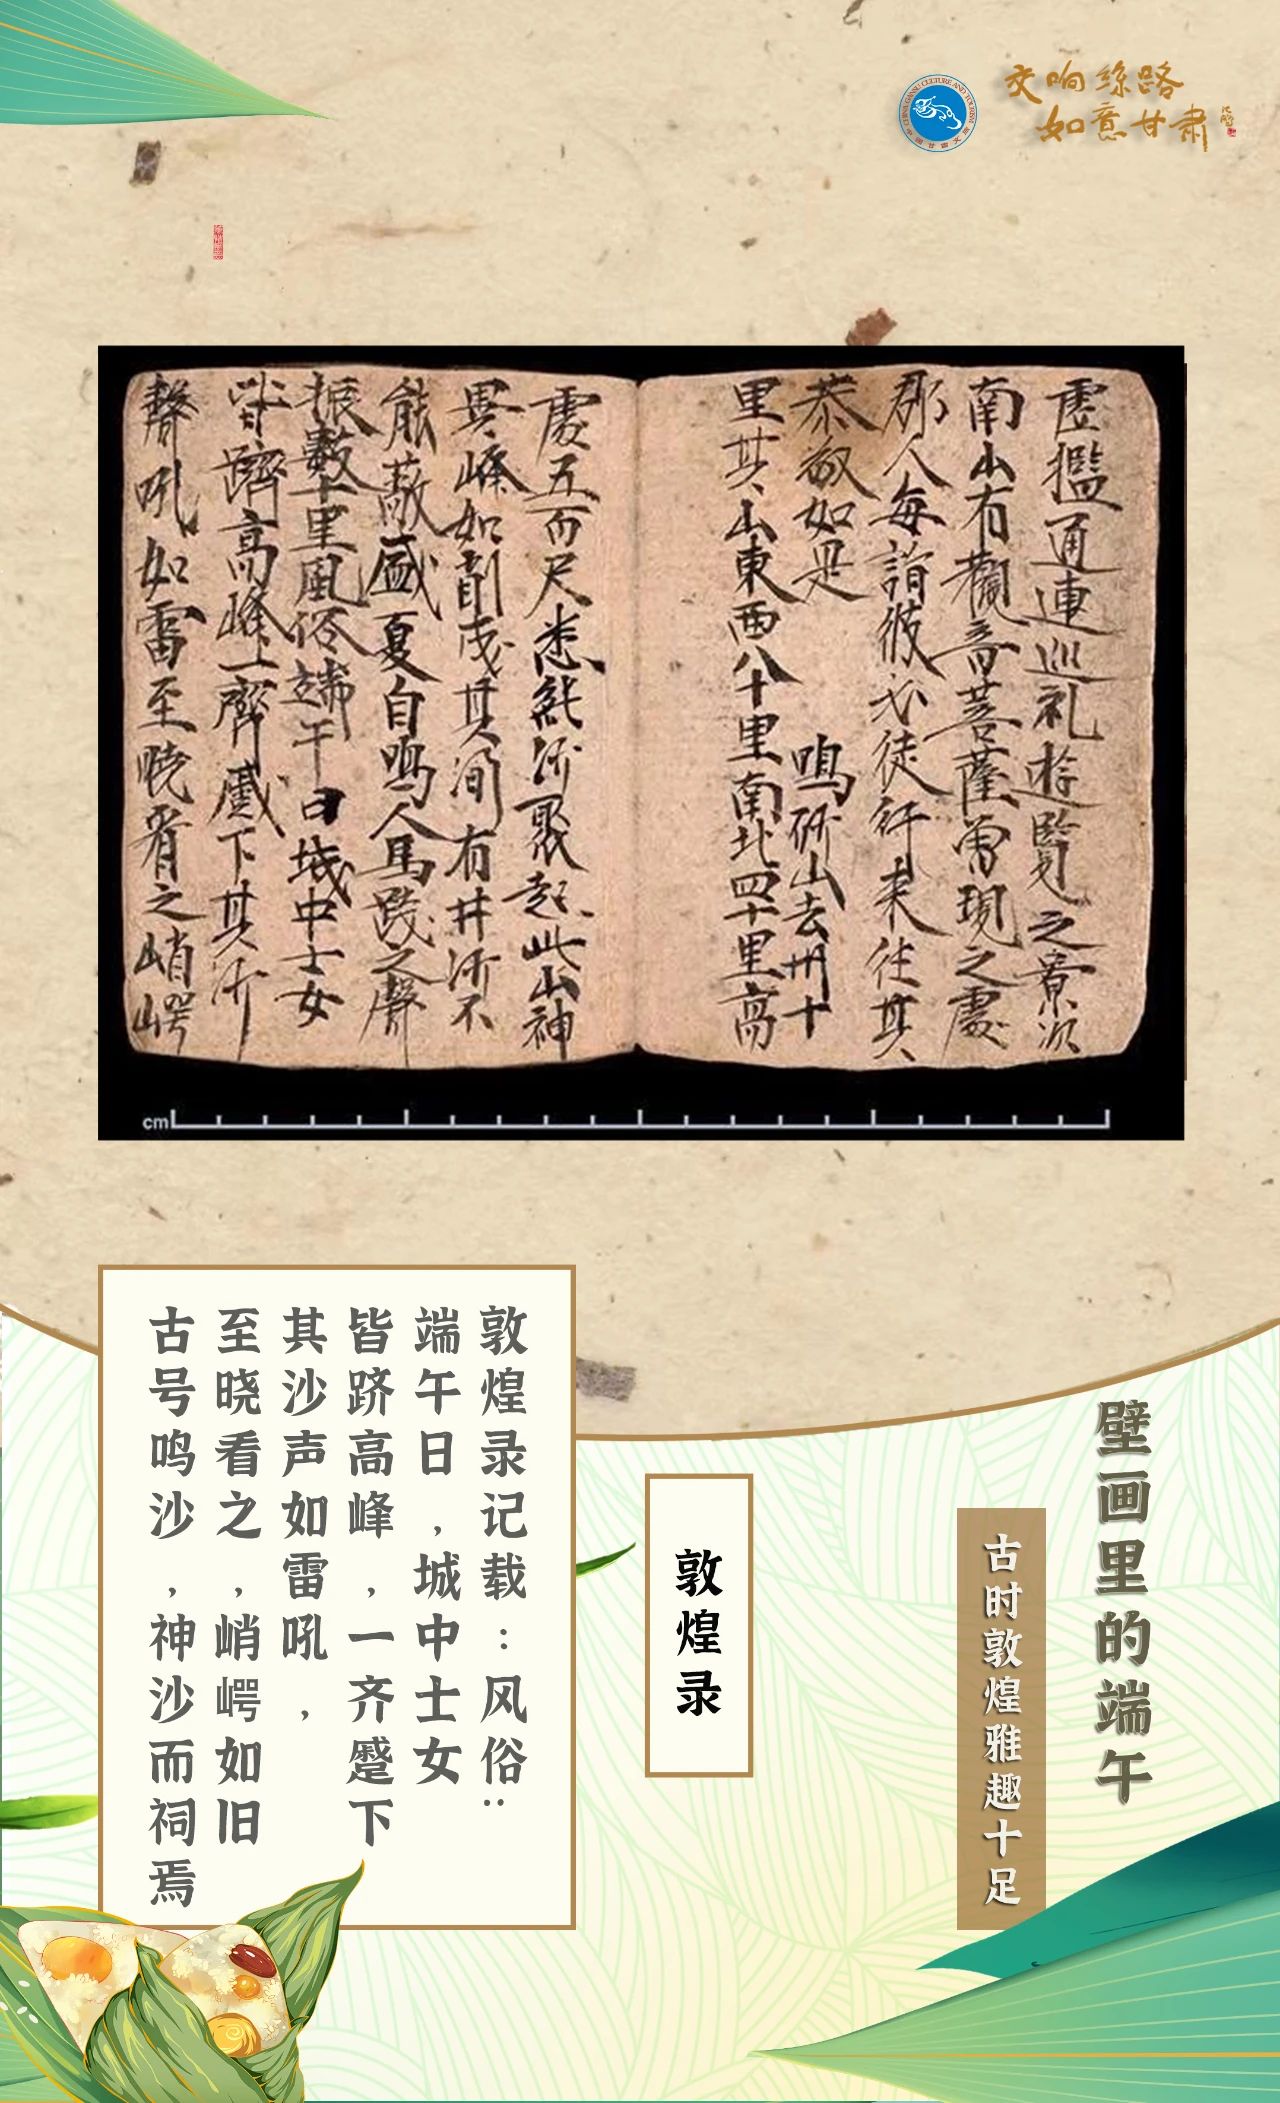 交响丝路
如意甘肃
CHINA GANSU CULTURE AND TOURISM
中国甘肃文旅
虚檻通連巡礼遊覧之景次
南山有觀音菩薩曾現之處
郡人每詣彼必徒行来往其
恭敬如是 鳴沙山去州十
里其山東西八十里南北四十里高
處五百尺悉純沙聚起此山神
異峰如削成其間有井沙不
能蔽盛夏自鳴人馬践之聲
振數十里風俗端午日城中士女
皆躋高峰一齊蹙下其沙
聲吼如雷至曉看之峭崿
cm
壁画里的端午
古时敦煌雅趣十足
敦煌录
敦煌录记载：风俗:
端午日，城中士女
皆跻高峰，一齐蹙下
其沙声如雷吼，
至晓看之，峭崿如旧
古号鸣沙，神沙而祠焉